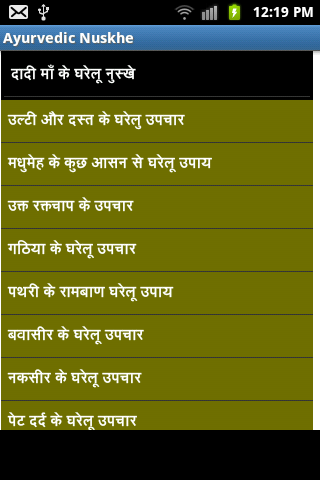 12:19 PM
Ayurvedic Nuskhe
दादी माँ के घरेलू नुस्खे
उल्टी और दस्त के घरेलु उपचार
मधुमेह के कुछ आसन से घरेलू उपाय
उक्त रक्तचाप के उपचार
गठिया के घरेलू उपचार
पथरी के रामबाण घरेलू उपाय
बवासीर के घरेलू उपचार
नकसीर के घरेलू उपचार
पेट दर्द के घरेलू उपचार